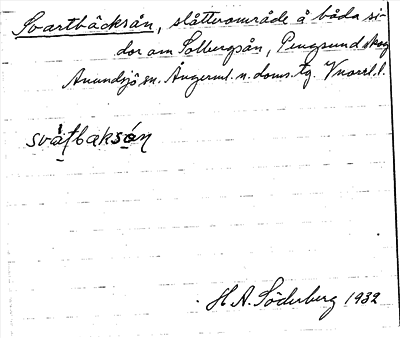 Svartbäcksån, slåtterområde å båda si-
dor om Solbergsån, Pengsund skog
Anundsjö sn. Ångerml. n. doms. tg. Vnorrl. l.
svåtbaksån
H. A. Söderberg 1932